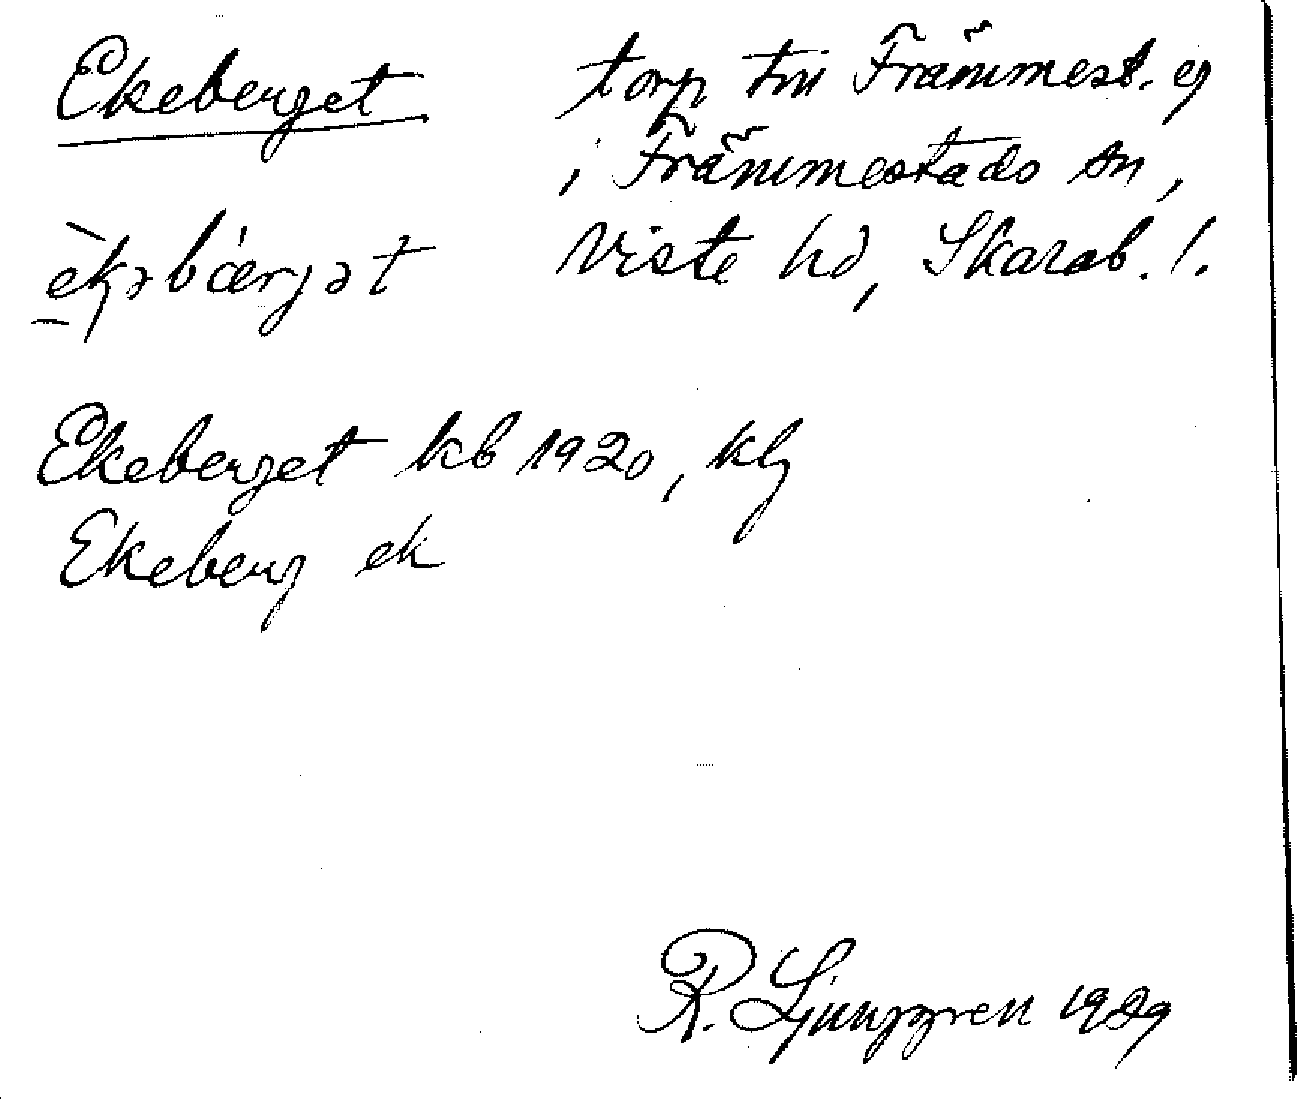 Ekeberget torp tm Främmest. eg
i Främmestads sn,
èkəbærgət Viste hd, Skarab. l.
Ekeberget kb 1920, klg
Ekeberg ek
R. Ljunggren 1929